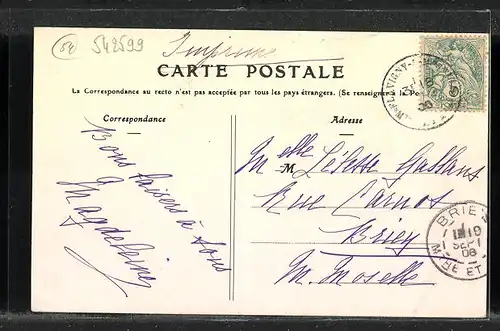 54
542599
Imprimé
CARTE POSTALE
La Correspondance au recto n'est pas acceptée par tous les pays étrangers. (Se renseigner à la Po
Correspondance
Adresse
Bons baisers à tous
Magdeleine
Melle
Rue Carnot
Briey
M. Moselle
BRIEY
19
SEPT
06
M RE ET